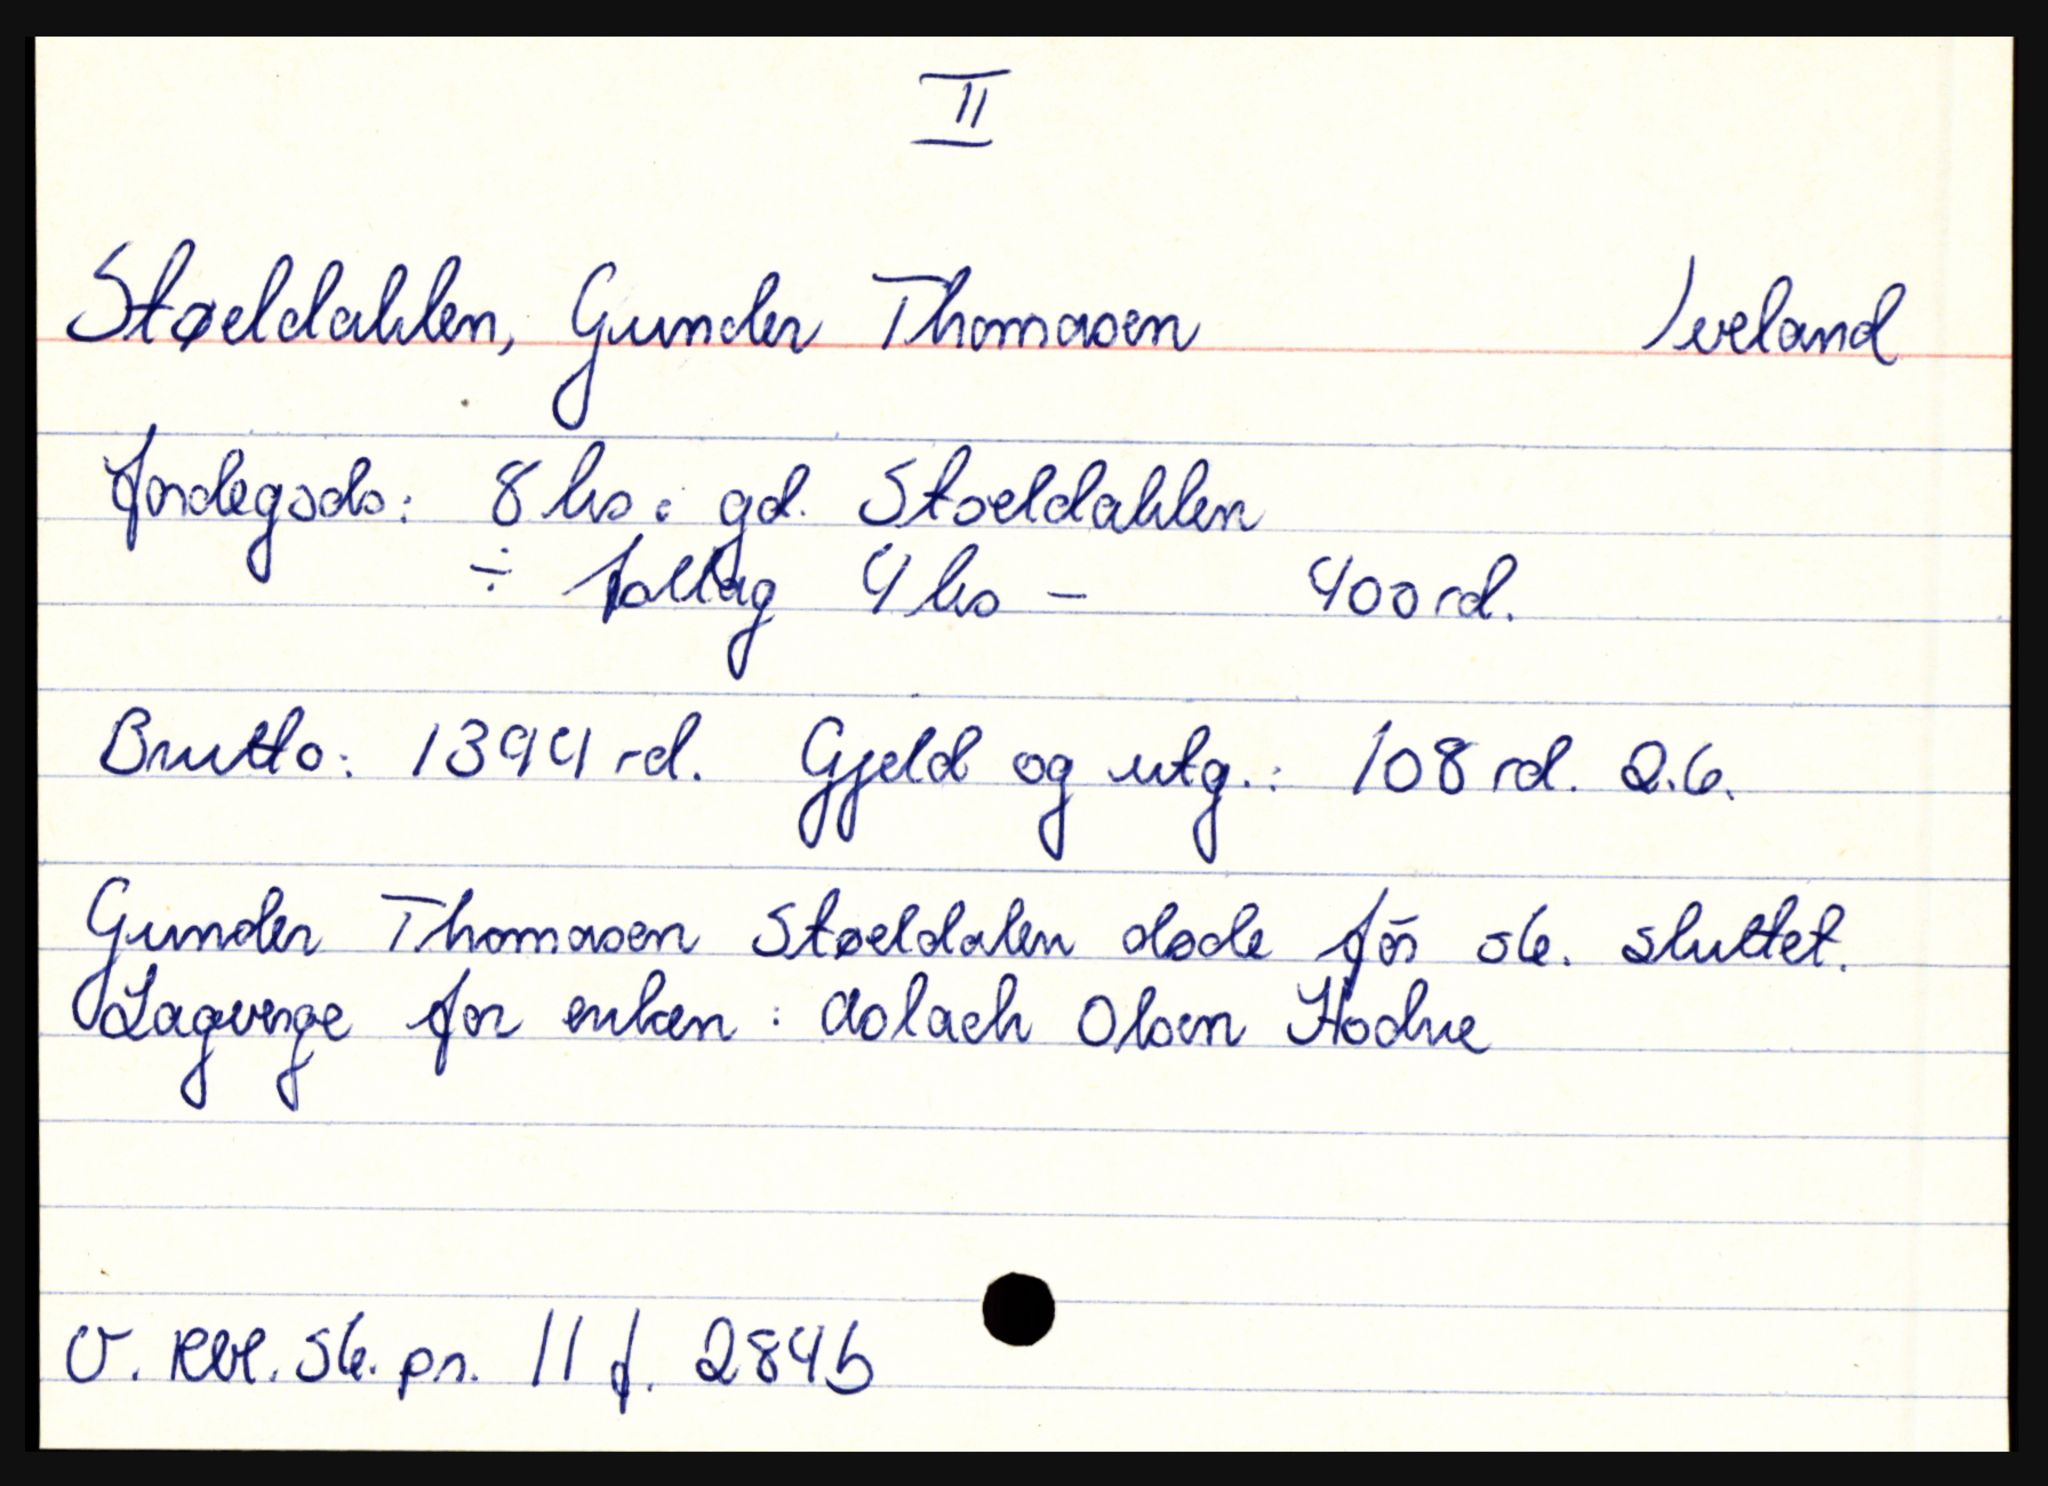 II
Støeldahlen, Gunder Thomasen Iveland
Jordegods: 8 hs i gd. Støeldahlen
÷ follag 4 hs - 400 rd.
Brutto: 1394 rd. Gjeld og utg.: 108 rd. 2.6.
Gunder Thomasen Støeldalen døde før sk. sluttet.
Lagverge for enken: Aslach Olsen Hodne
V. Rbl. sk. pr. 11 f. 284b